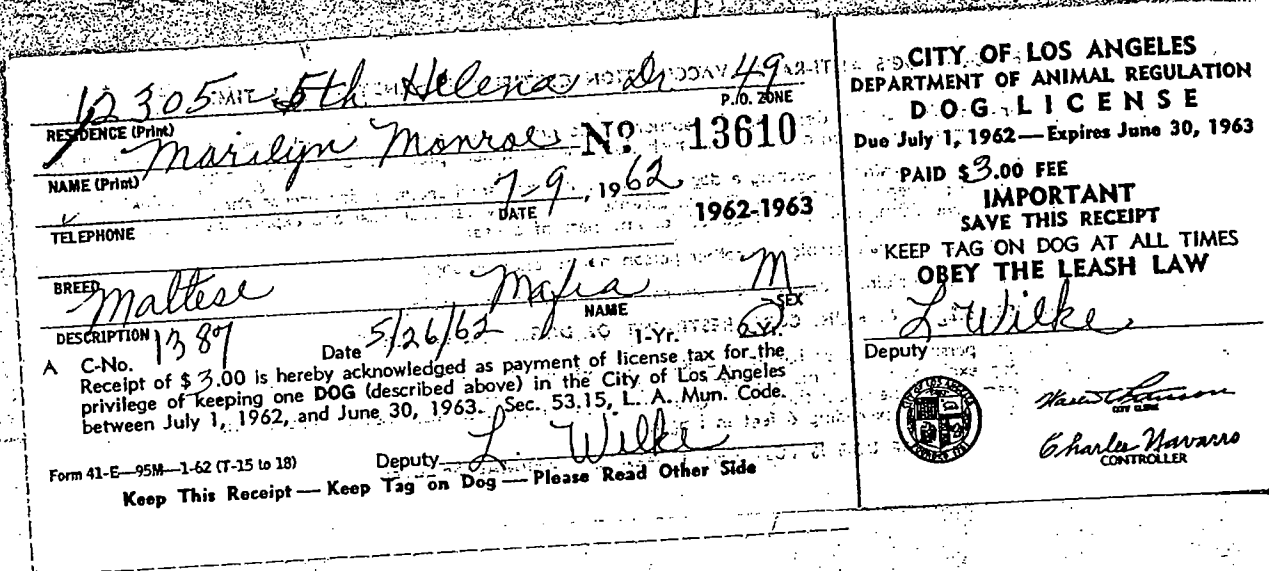 12305 5th Helena Dr 49
RESIDENCE (Print) P.O. ZONE
Marilyn Monroe No 13610
NAME (Print)
7-9, 1962
DATE 1962-1963
TELEPHONE
BREED
Maltese Mafia M
DESCRIPTION NAME SEX
C-No. 1387 Date 5/26/62 1-Yr. 2-Yr.
A Receipt of $3.00 is hereby acknowledged as payment of license tax for the
privilege of keeping one DOG (described above) in the City of Los Angeles
between July 1, 1962, and June 30, 1963. Sec. 53.15, L. A. Mun. Code.
Deputy L. Wilke
Form 41-E—95M—1-62 (T-15 to 18)
Keep This Receipt — Keep Tag on Dog — Please Read Other Side
CITY OF LOS ANGELES
DEPARTMENT OF ANIMAL REGULATION
DOG LICENSE
Due July 1, 1962—Expires June 30, 1963
PAID $3.00 FEE
IMPORTANT
SAVE THIS RECEIPT
KEEP TAG ON DOG AT ALL TIMES
OBEY THE LEASH LAW
L. Wilke
Deputy
CITY CLERK
Charles Navarro
CONTROLLER